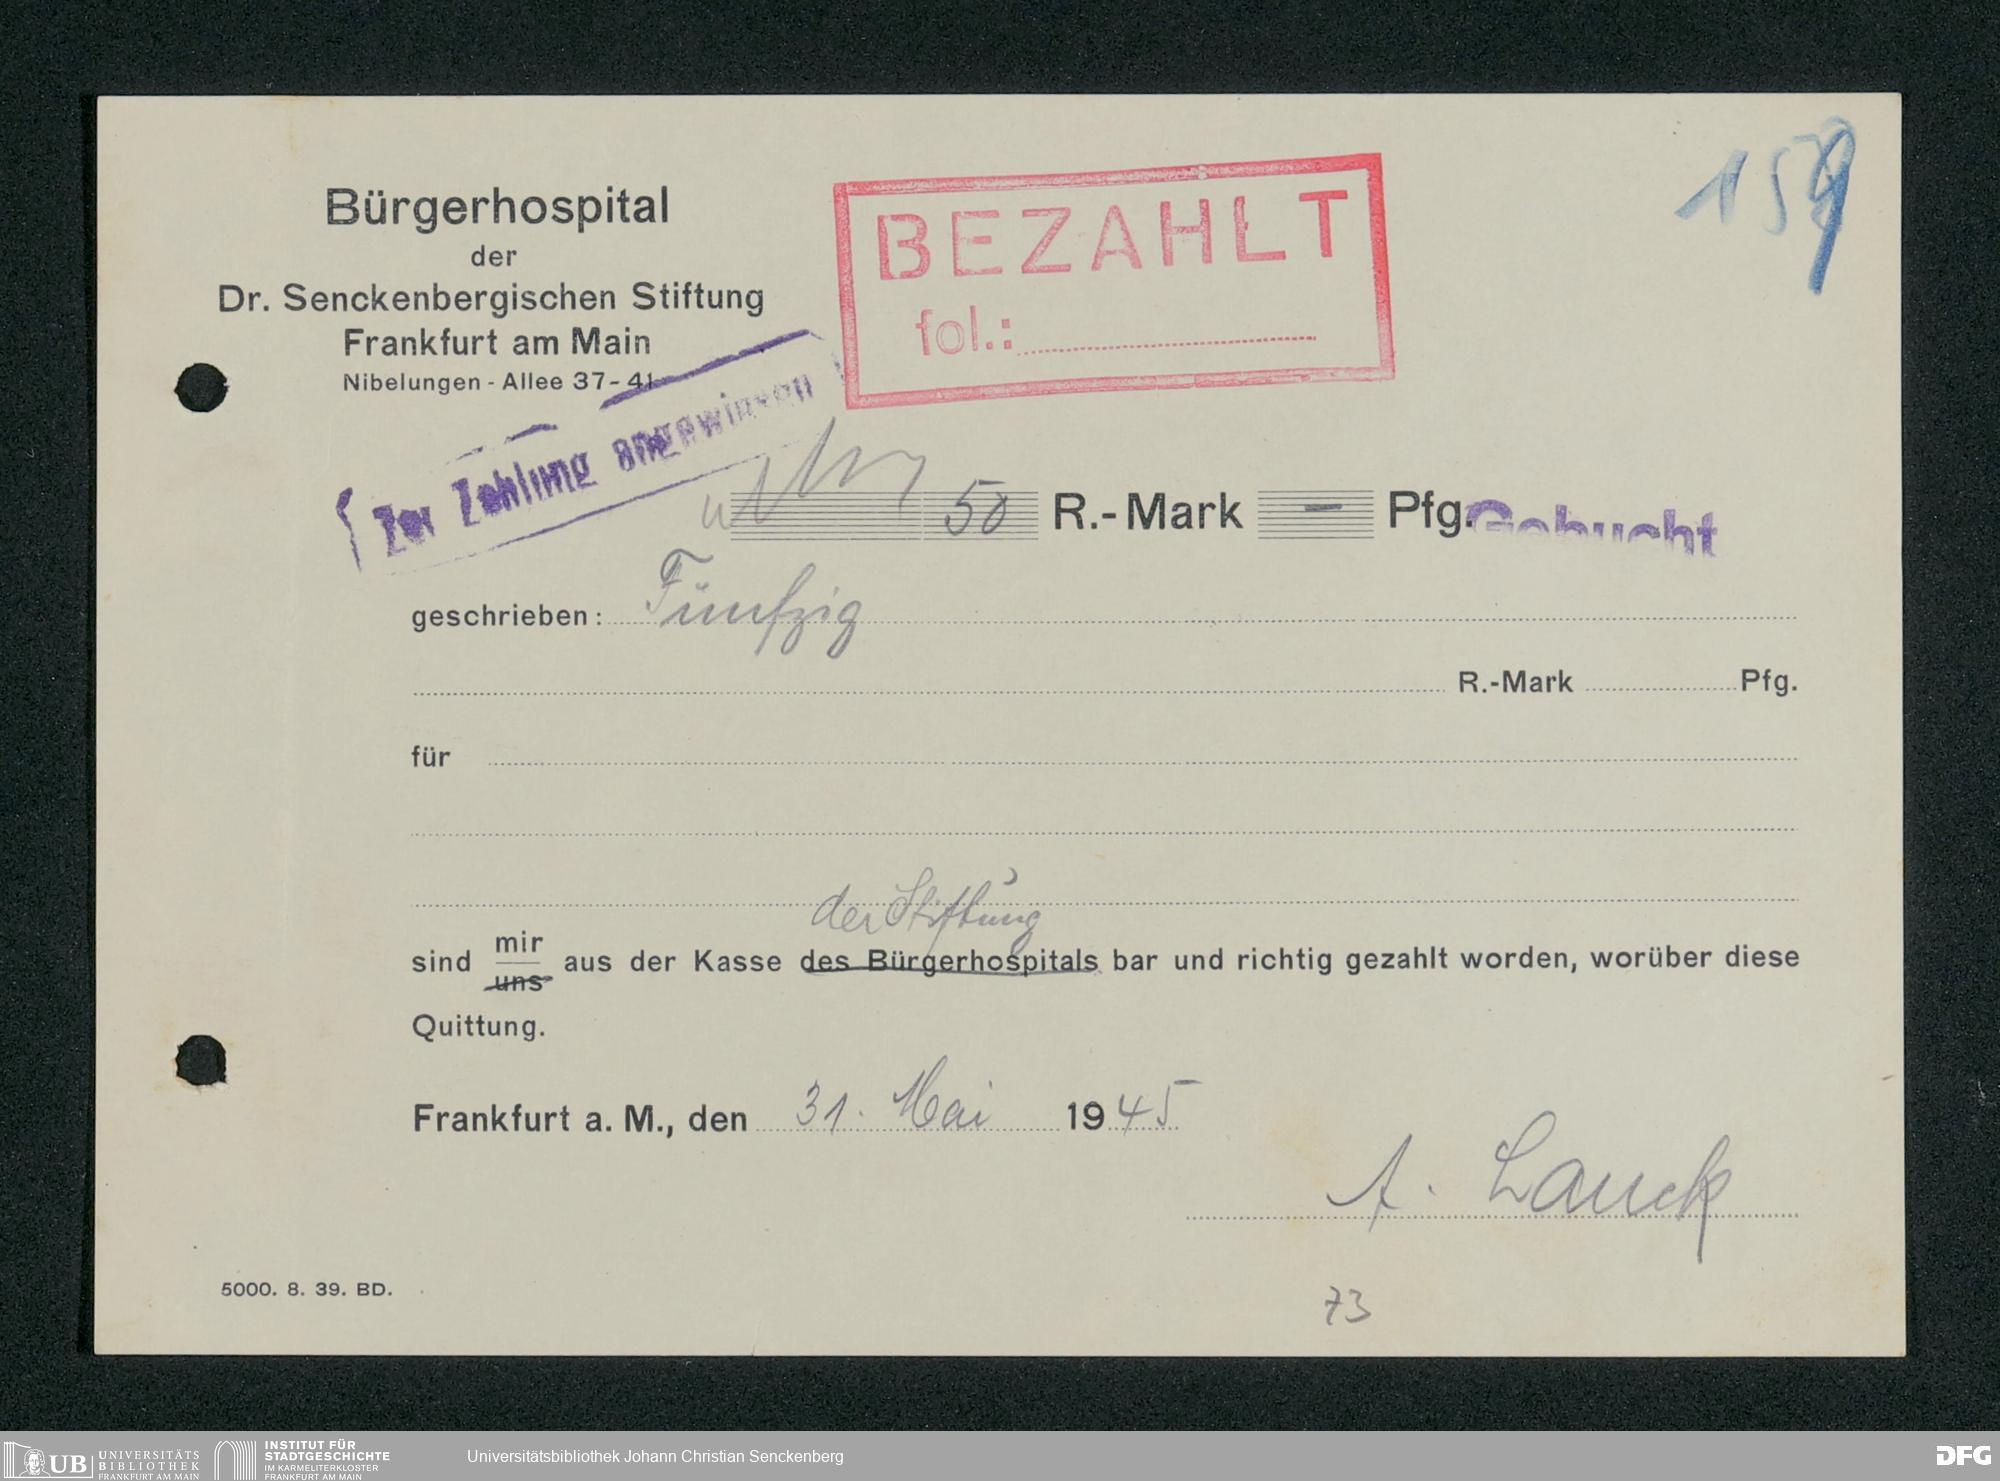 Bürgerhospital
der
Dr. Senckenbergischen Stiftung
Frankfurt am Main
Nibelungen - Allee 37-41
BEZAHLT
fol.:
Zur Zahlung angewiesen
50 R.-Mark — Pfg.
Gebucht
geschrieben: Fünfzig
R.-Mark Pfg.
für
der Stiftung
sind mir uns aus der Kasse des Bürgerhospitals bar und richtig gezahlt worden, worüber diese
Quittung.
Frankfurt a. M., den 31. Mai 1945
A. Lauck
5000. 8. 39. BD.
73
UB UNIVERSITÄTS
BIBLIOTHEK
FRANKFURT AM MAIN
INSTITUT FÜR
STADTGESCHICHTE
IM KARMELITERKLOSTER
FRANKFURT AM MAIN
Universitätsbibliothek Johann Christian Senckenberg
DFG